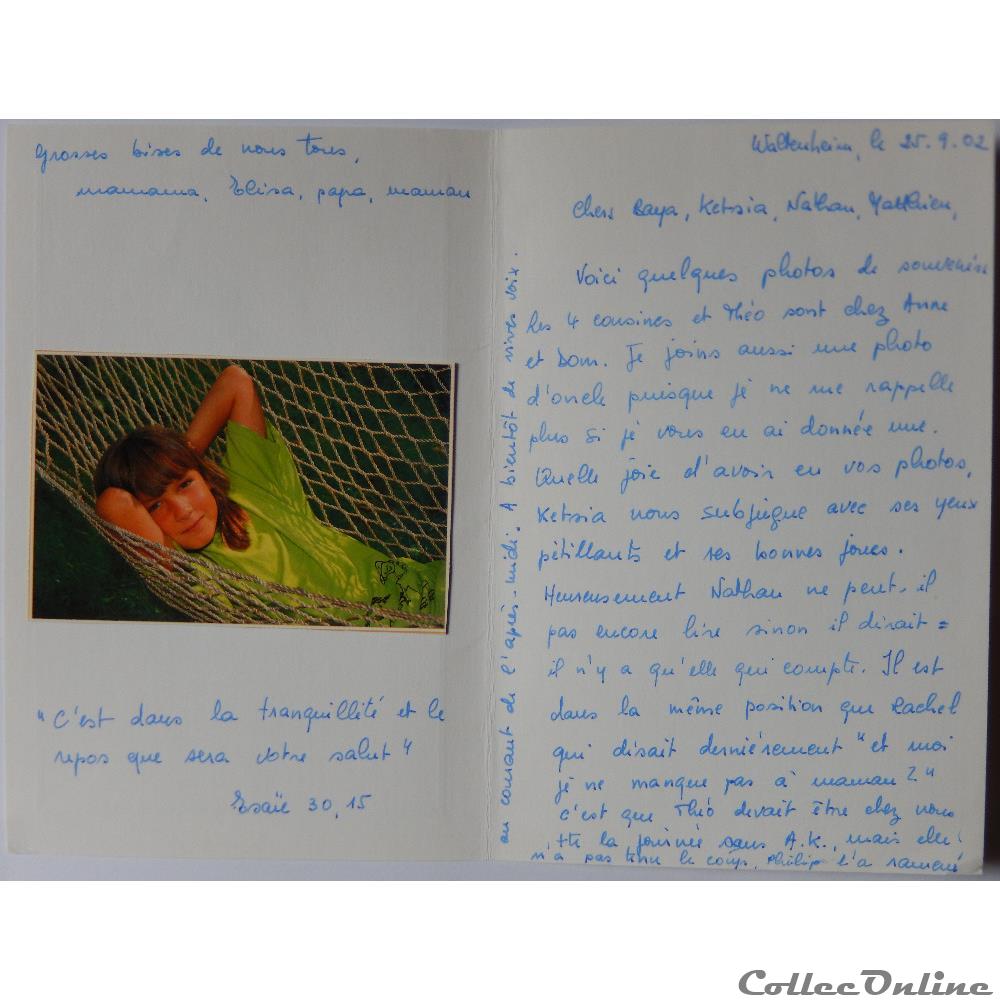 Waltenheim, le 25.9.02
Chers Baya, Ketsia, Nathan, Matthieu,
Voici quelques photos de souvenirs
les 4 cousines et Théo sont chez Anne
et Dom. Je joins aussi une photo
d'oncle puisque je ne me rappelle
plus si je vous en ai donnée une.
Quelle joie d'avoir eu vos photos,
Ketsia nous subjugue avec ses yeux
pétillants et ses bonnes joues.
Heureusement Nathan ne peut-il
pas encore lire sinon il dirait =
il n'y a qu'elle qui compte. Il est
dans la même position que Rachel
qui disait dernièrement "et moi
je ne manque pas à maman ?"
c'est que Théo devait être chez nous
tte la journée sans A.K., mais elle
n'a pas tenu le coup, Philip l'a ramené
au courant de l'après-midi. A bientôt de vives voix.
Grosses bises de nous tous,
mamama, Elisa, papa, maman
"C'est dans la tranquillité et le
repos que sera votre salut"
Esaïe 30, 15
CollecOnline